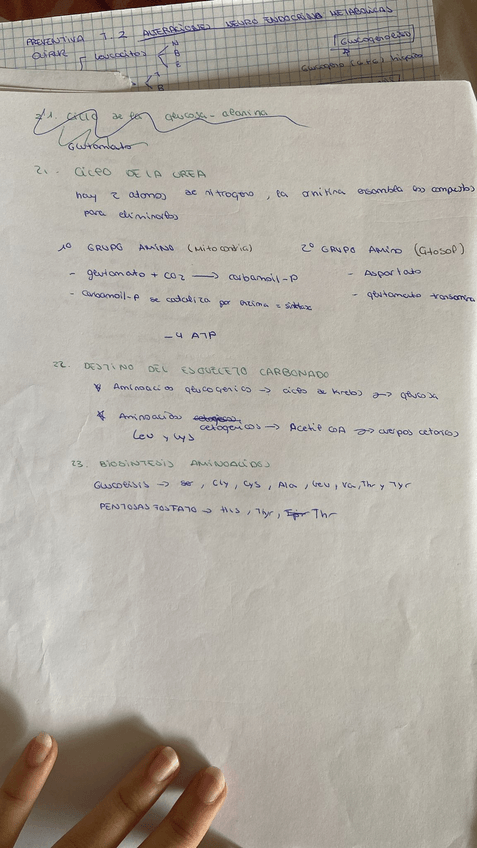 PREVENTIVA T.2 ALTERACIONES NEURO ENDOCRINO METABOLICAS
leucocitos
N
B
E
Glucogenolisis
21. Ciclo de la glucosa - alanina
Glutamato
21. CICLO DE LA UREA
hay 2 atomos de nitrogeno, la ornitina ensambla los compuestos
para eliminarlos
1º GRUPO AMINO (Mitocondria) 2º GRUPO AMINO (Citosol)
- glutamato + CO2 → carbamoil-P - Aspartato
- carbamoil-P se cataliza por enzima = sintasa - glutamato transamina
- 4 ATP
22. DESTINO DEL ESQUELETO CARBONADO
* Aminoacidos glucogenico → ciclo de krebs → glucosa
* Aminoacidos cetogenicos cetogenicos → Acetil CoA → cuerpos cetonicos
Leu y Lys
23. BIOSINTESIS AMINOACIDOS
GLUCOLISIS → Ser, Gly, Cys, Ala, Leu, Va, Thr y Tyr
PENTOSAS FOSFATO → His, Tyr, Thr